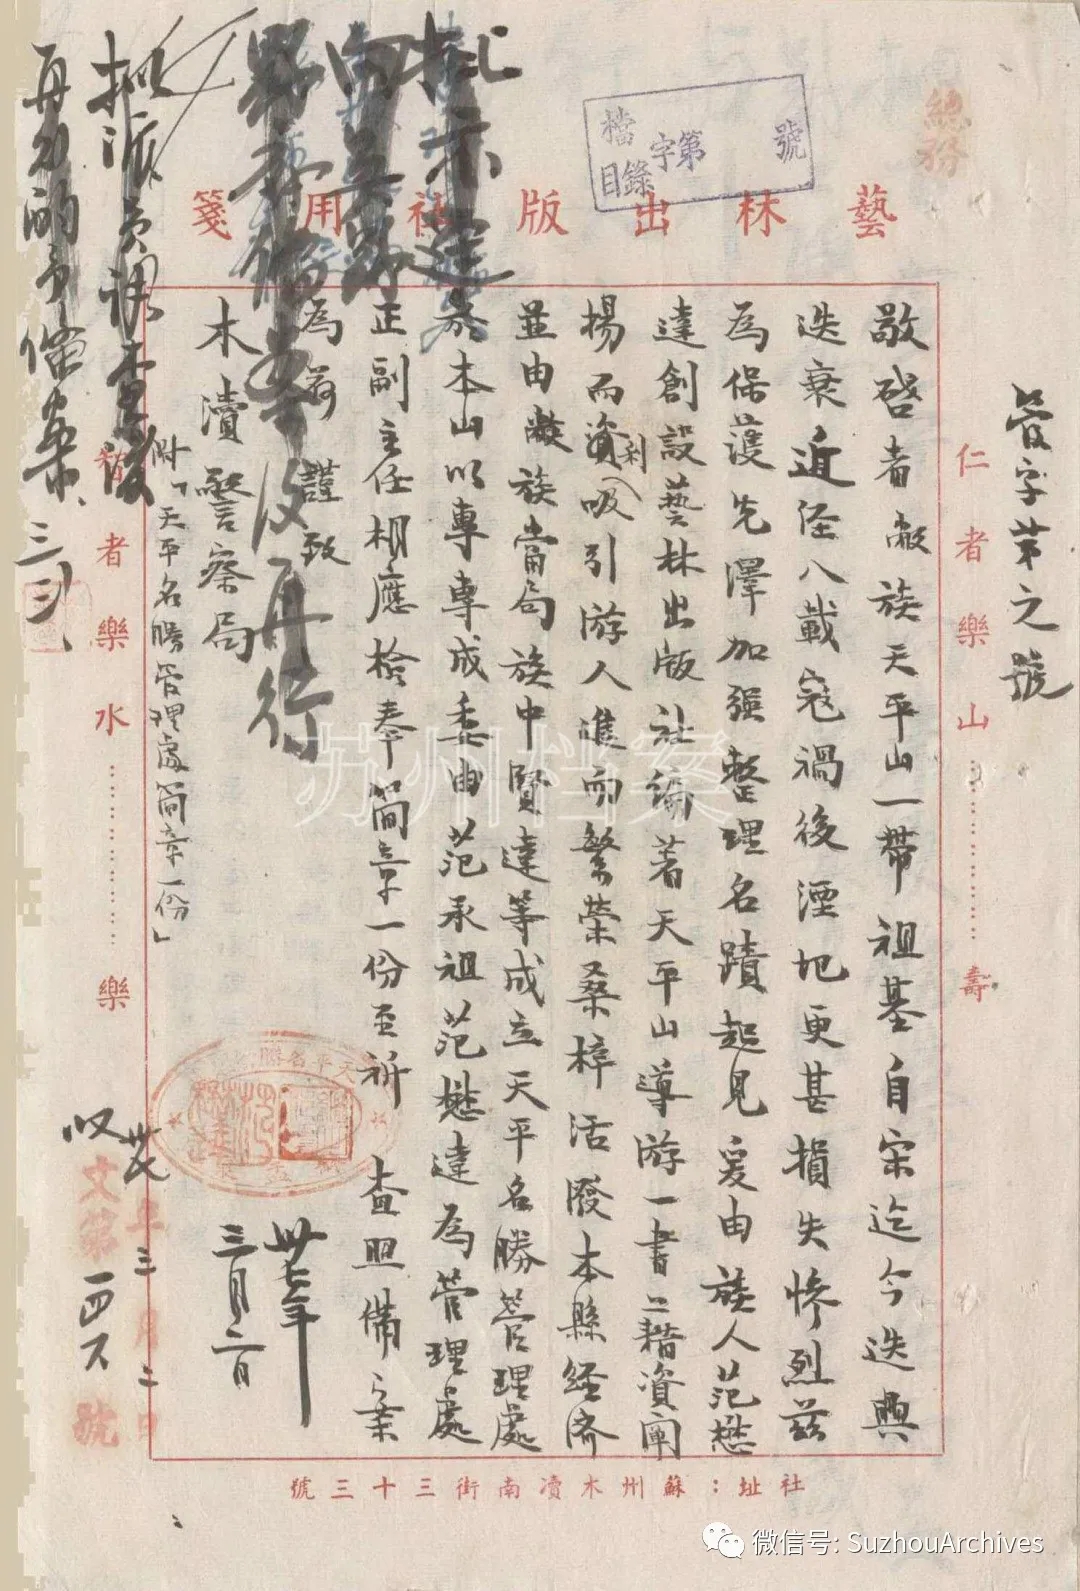 總務
檔 字第 號
目錄
藝林出版社用箋
管字第之號
仁者樂山 壽
敬啓者敝族天平山一帶祖基自宋迄今迭興
迭衰近經八載寇禍後湮圯更甚損失慘烈茲
為保護先澤加强整理名蹟起見爰由族人范懋
達創設藝林出版社編著天平山導游一書藉資闡
揚而資吸引游人進而繁榮桑梓活潑本縣經济
利
並由敝族當局族中賢達等成立天平名勝管理處
於本山以專專成委由范承祖范懋達為管理處
正副主任相應檢奉簡章一份至祈 查照備案
為荷 謹致
木瀆警察局
附「天平名勝管理處簡章一份」
卅七年
三月二日
天平名勝
者樂水 樂
批示逕
向吳縣
再行
擬派員調查後
再行酌予備案
卅七年三月二日
文第一四六號
社址：蘇州木瀆南街三十三號
苏州档案
微信号: SuzhouArchives